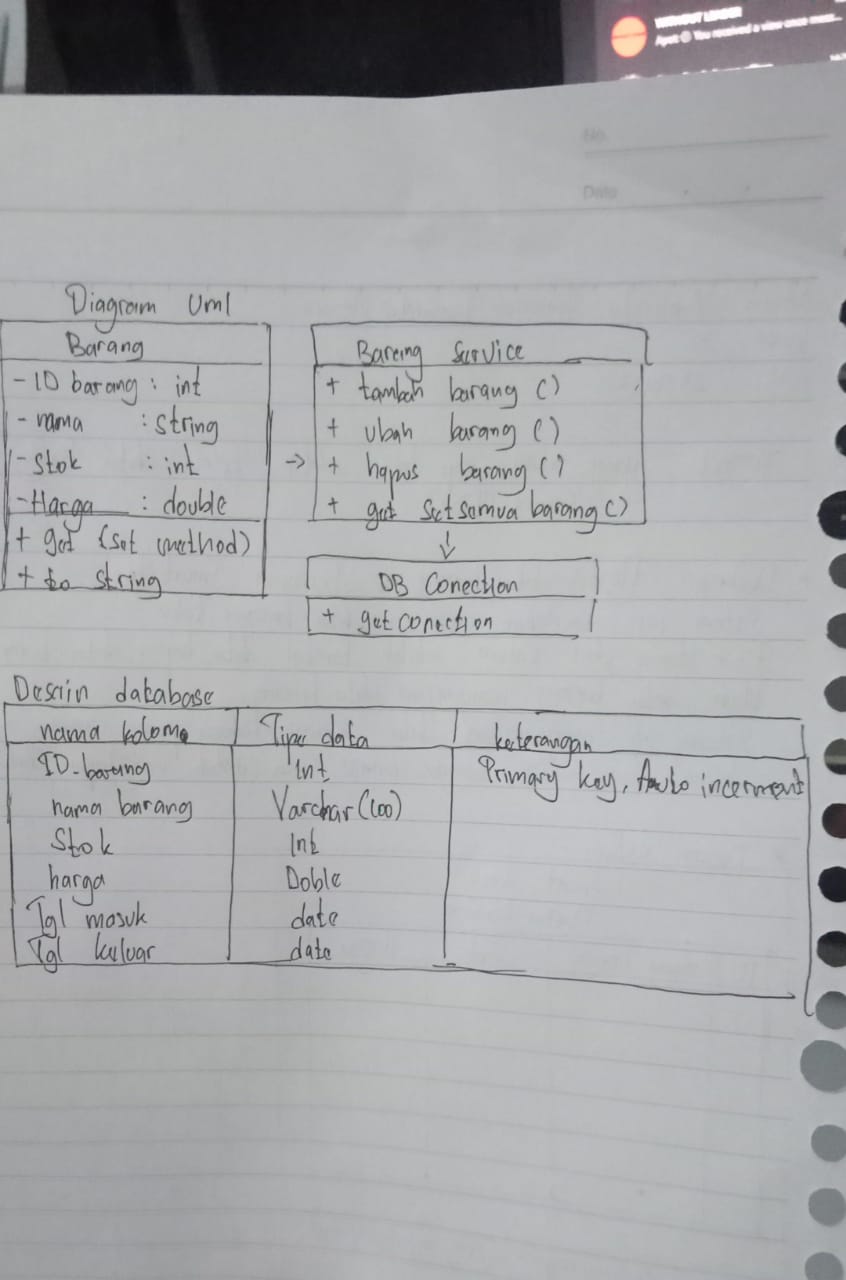 WITHOUT LEADER
Ayet: You received a view once mess...
No.
Date
Diagram Uml
Barang
- ID barang : int
- nama : string
- Stok : int
- Harga : double
+ get (set method)
+ to string
→
Barang Service
+ tambah barang ()
+ ubah barang ()
+ hapus barang ()
+ get set semua barang ()
↓
DB Conection
+ get conection
Desain database
nama kolom Tipe data keterangan
ID_barang Int Primary key, Auto incerment
nama barang Varchar (100)
Stok Int
harga Doble
Tgl masuk date
Tgl keluar date